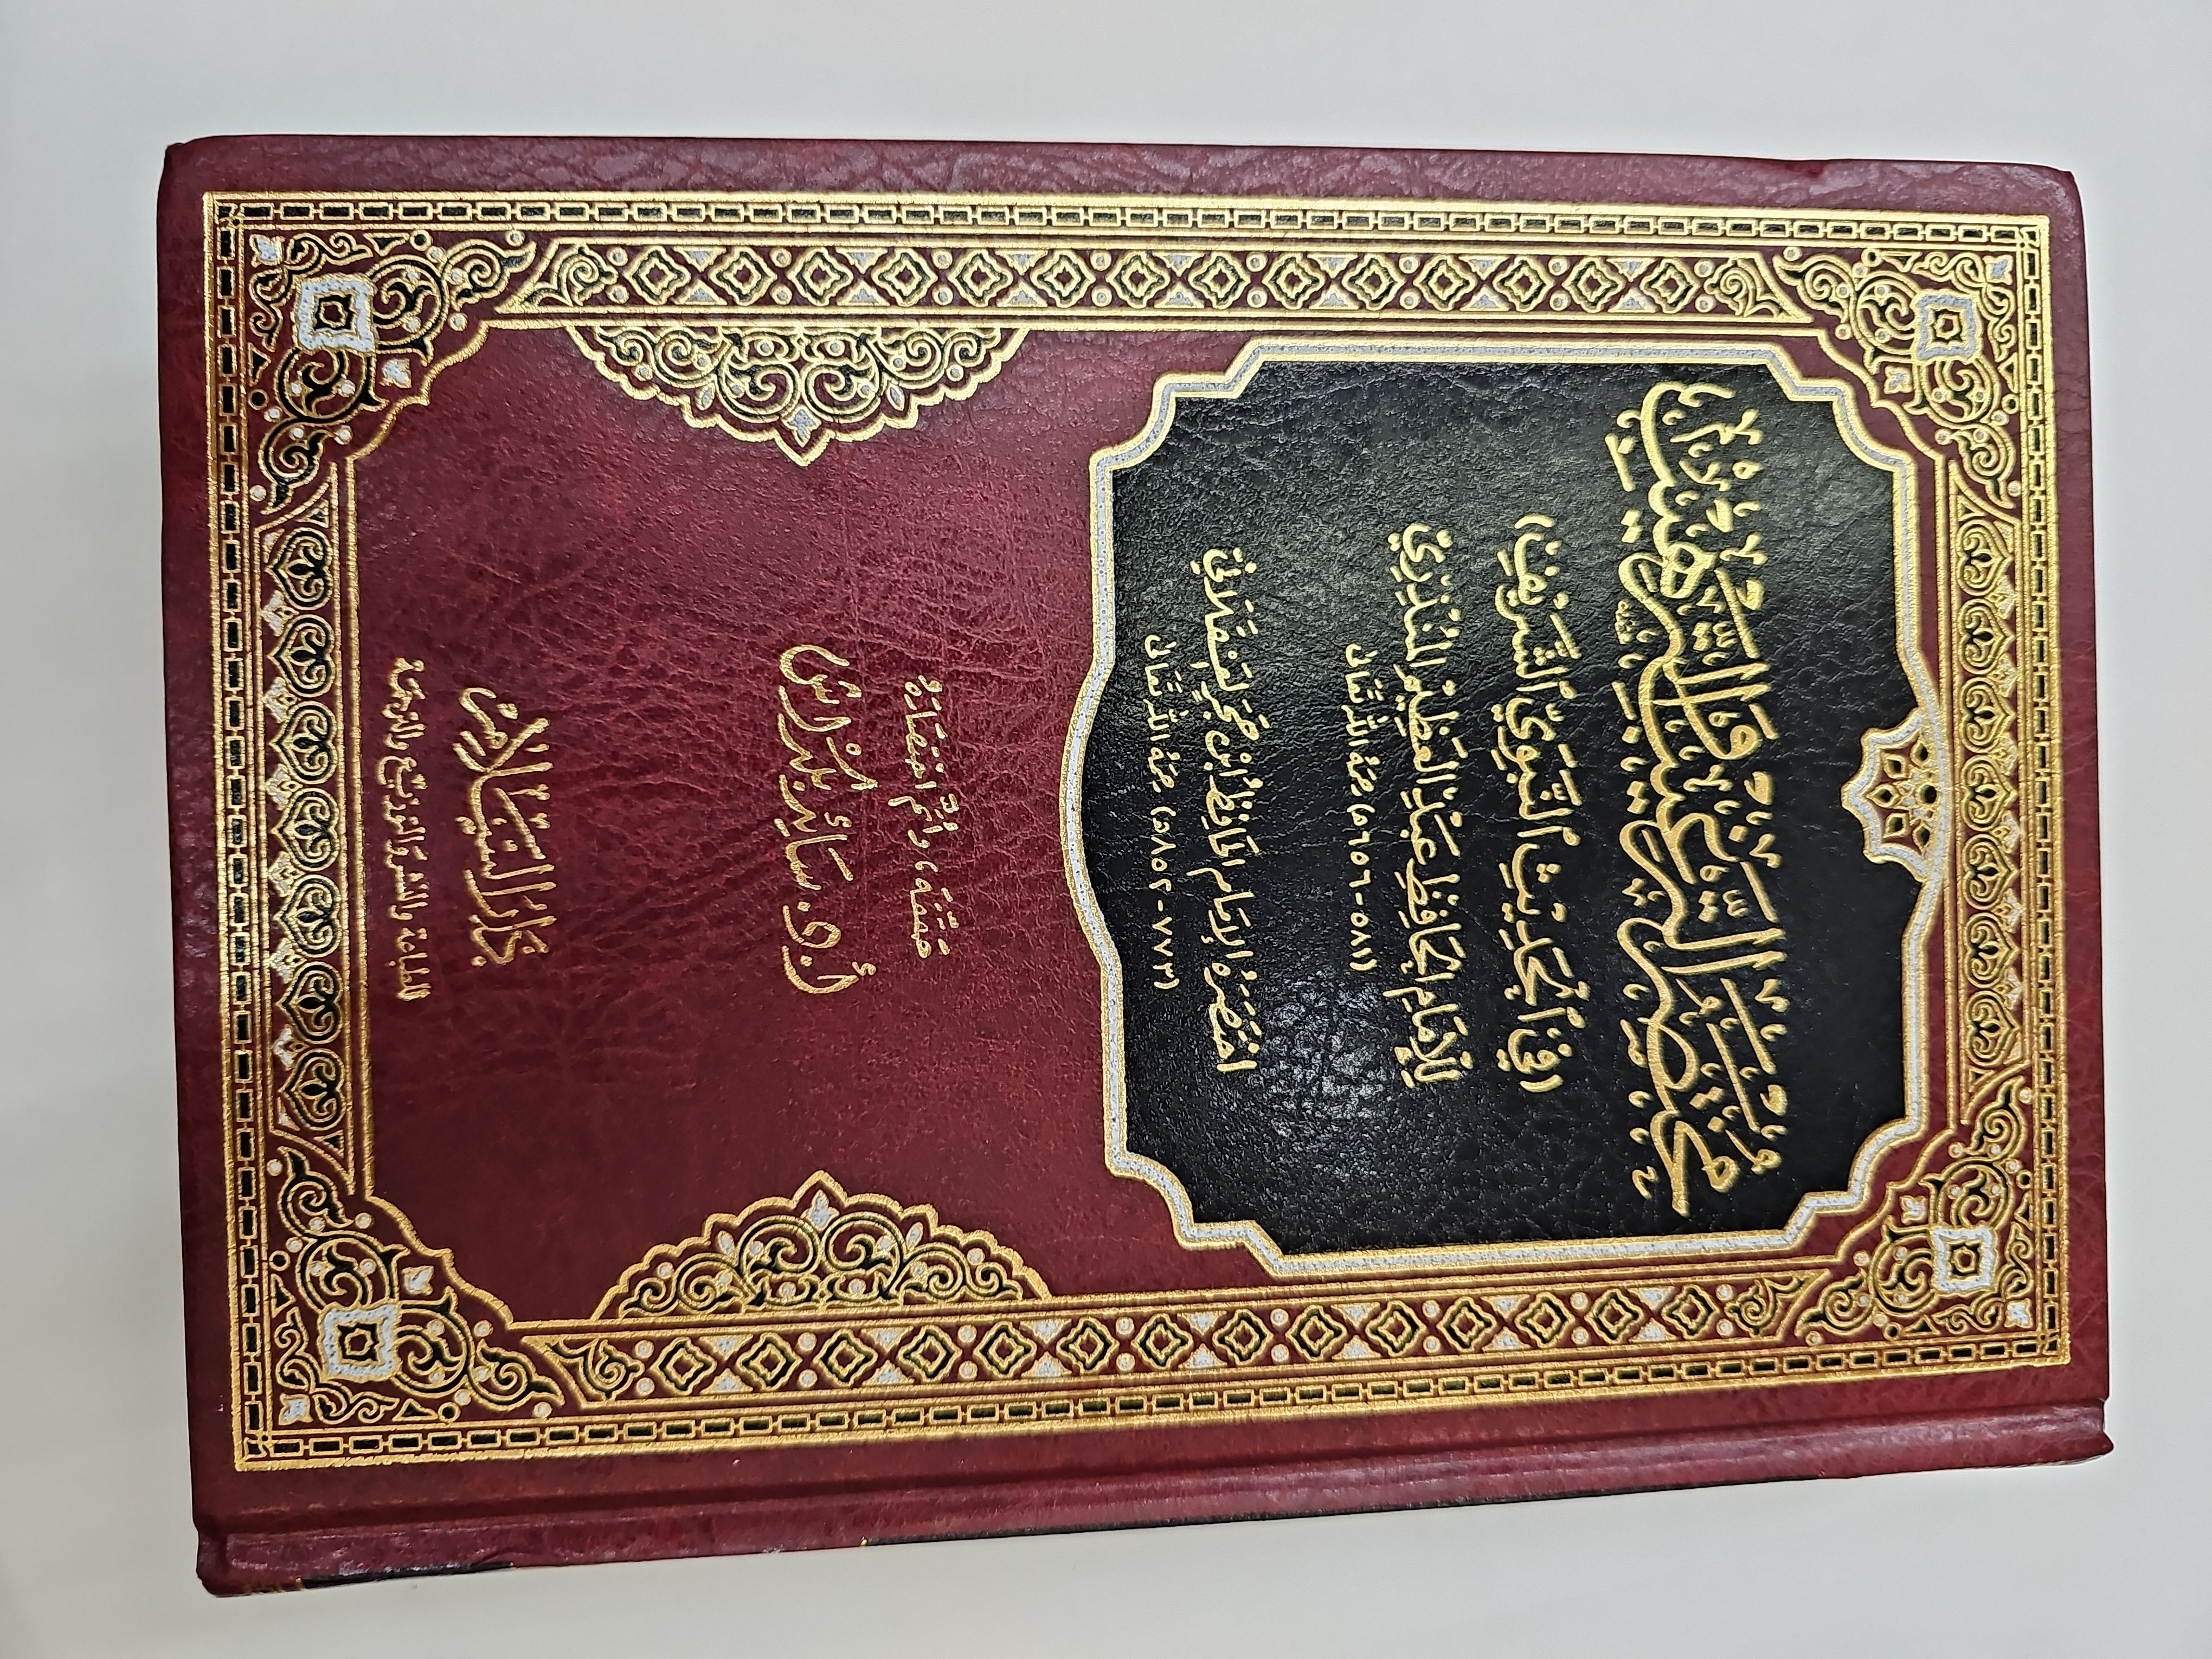 مختصر الترغيب والترهيب
(في الحديث النبوي الشريف)
للإمام الحافظ عبد العظيم المنذري
(٥٨١-٦٥٦هـ) رحمه الله تعالى
اختصره الإمام الحافظ ابن حجر العسقلاني
(٧٧٣-٨٥٢هـ) رحمه الله تعالى
حققه، وأتم اختصاره
أ.د. سائد بكداش
دار السلام
للطباعة والنشر والتوزيع والترجمة